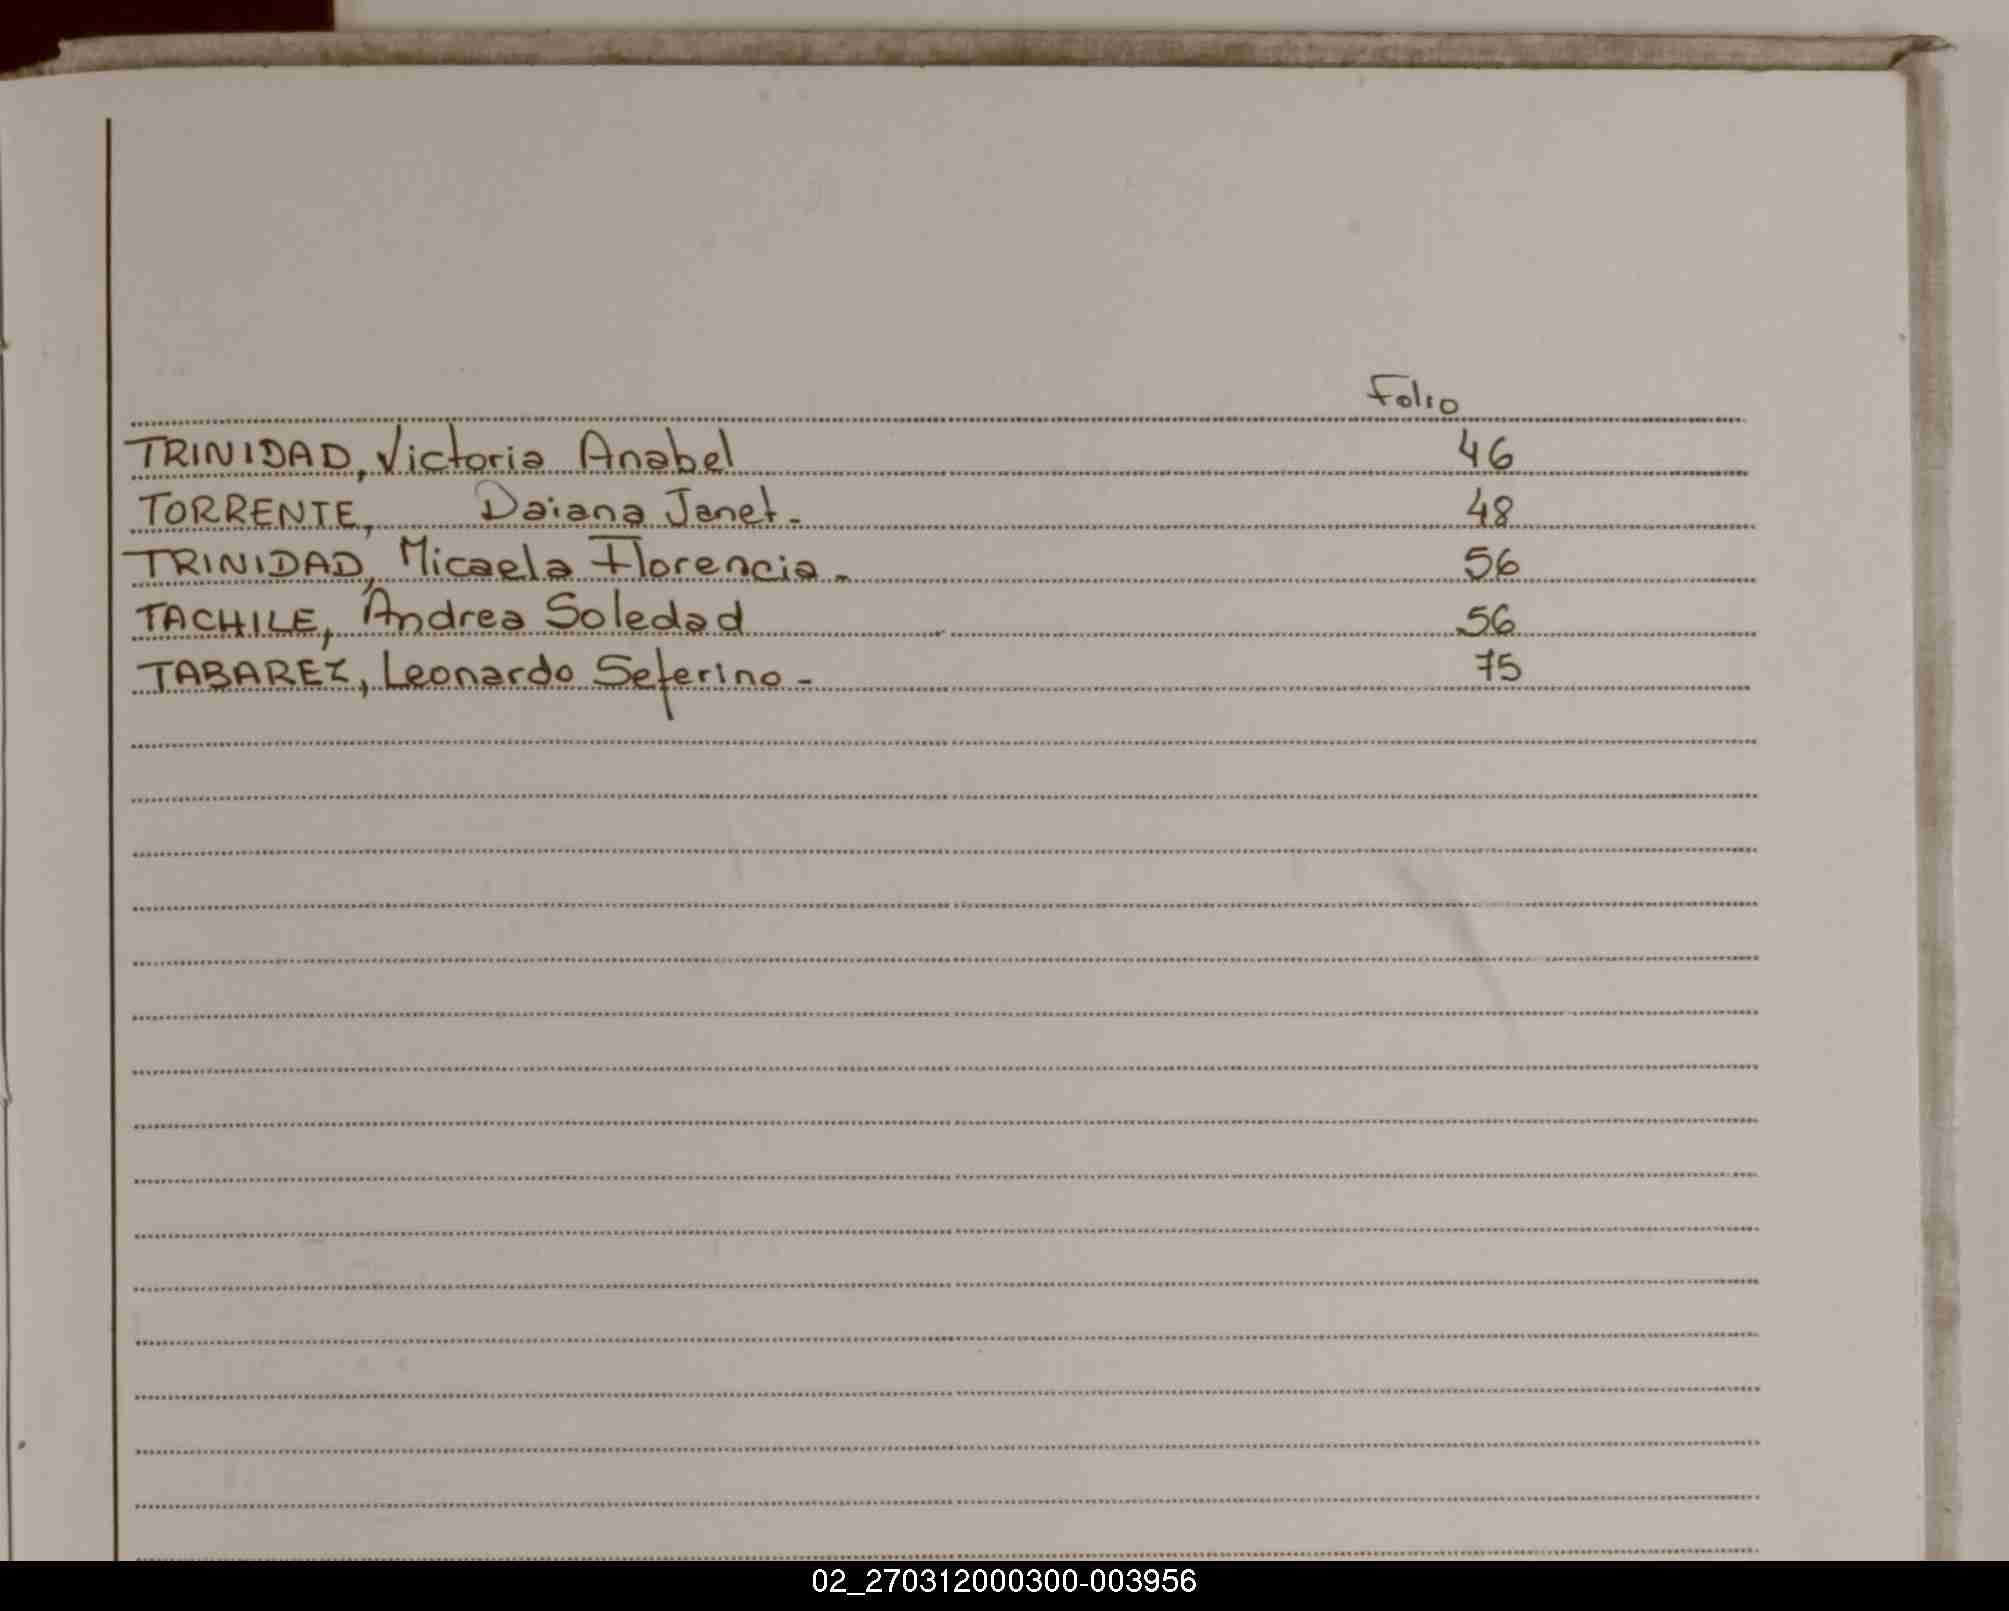 Folio
TRINIDAD, Victoria Anabel 46
TORRENTE, Daiana Janet.- 48
TRINIDAD, Micaela Florencia.- 56
TACHILE, Andrea Soledad 56
TABAREZ, Leonardo Seferino.- 75
02_270312000300-003956